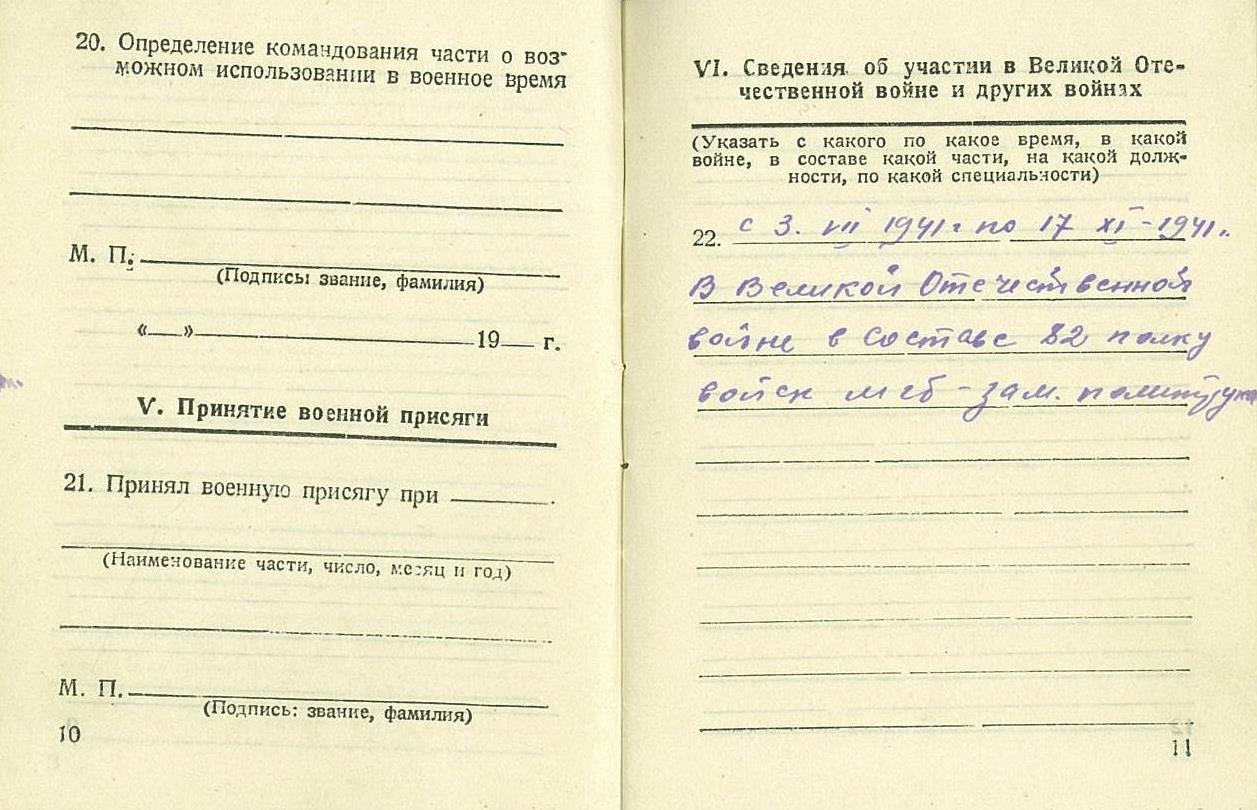 20. Определение командования части о воз-
можном использовании в военное время
М. П.
(Подписы звание, фамилия)
«__» 19__ г.
V. Принятие военной присяги
21. Принял военную присягу при
(Наименование части, число, месяц и год)
М. П.
(Подпись: звание, фамилия)
10
VI. Сведения об участии в Великой Оте-
чественной войне и других войнах
(Указать с какого по какое время, в какой
войне, в составе какой части, на какой долж-
ности, по какой специальности)
22. с 3. VII 1941 г по 17 XI - 1941 г.
В Великой Отечественной
войне в составе 82 полку
войск мгб - зам. политрука
11